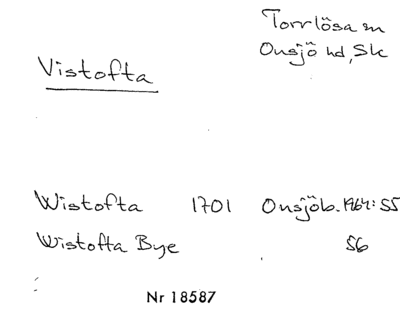 Torrlösa sn
Onsjö hd, Sk
Vistofta
Wistofta 1701 Onsjöb. 1964: 55
Wistofta Bye 56
Nr 18587